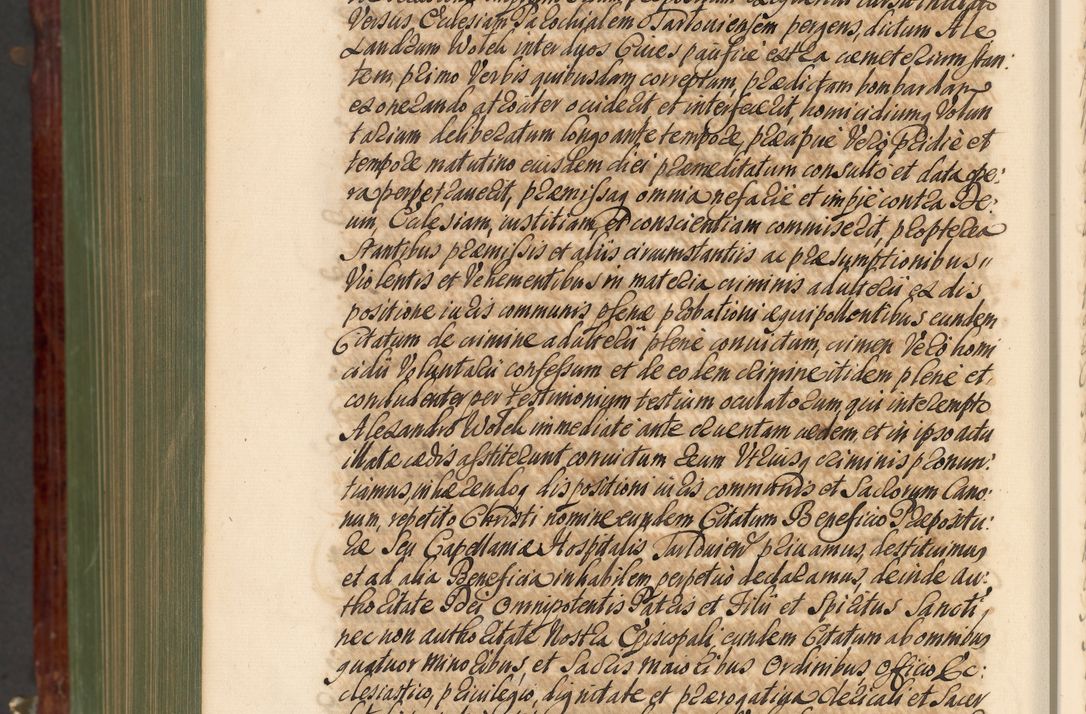 Versus Eclesiam Parochialem Tarloviensem pergens, dictum Ale
xandrum Wolek inter duos Cives pacificè extra cæmeterium stan:
tem, primo Verbis quibusdam correptum, prædictam bombardam
exonerando atrociter occiderit et interfecerit, homicidiumq Volun
tarium deliberatum longo ante tempore, præapue Verò pridiè et
tempore matutino eiusdem diei præmeditatum consultò et data ope:
ra perpetraverit, præmissaq omnia nefariè et impiè contra De:
um, Eclesiam, iustitiam, et conscientiam commiserit, propterea
stantibus præmissis et aliis circumstantiis ac præsumptionibus
Violentis et Vehementibus in materia criminis adulterii ex dis
positione iuris communis plenæ probationi æquipollentibus eundem
Citatum de crimine adulterii plenè convictum, crimen Verò homi
cidii Voluntarii confessum et de eodem crimine itidem plenè et
concludenter per testimonium testium oculatorum, qui interempto
Alexandro Wolek immediatè ante cruentam cædem et in ipso actu
illatæ cædis astiterunt convictum reum Utriusq criminis pronun:
tiamus, inhærendoq dispositioni iuris communis et Sacrorum Cano:
num, repetito Christi nomine eundem Citatum Beneficio Præpositu:
ræ Seu Capellaniæ Hospitalis Tarlovien privamus, destituimus
et ad alia Beneficia inhabilem perpetuò declaramus, deinde au:
thoritate Dei Omnipotentis Patris et Filii et Spiritus Sancti,
nec non authoritate Nostra Episcopali, eundem Citatum ab omnibus
quatuor minoribus et Sacris maioribus Ordinibus, Officio Ec:
clesiastico, privilegio, dignitate et prærogativa Clericali et Sacer